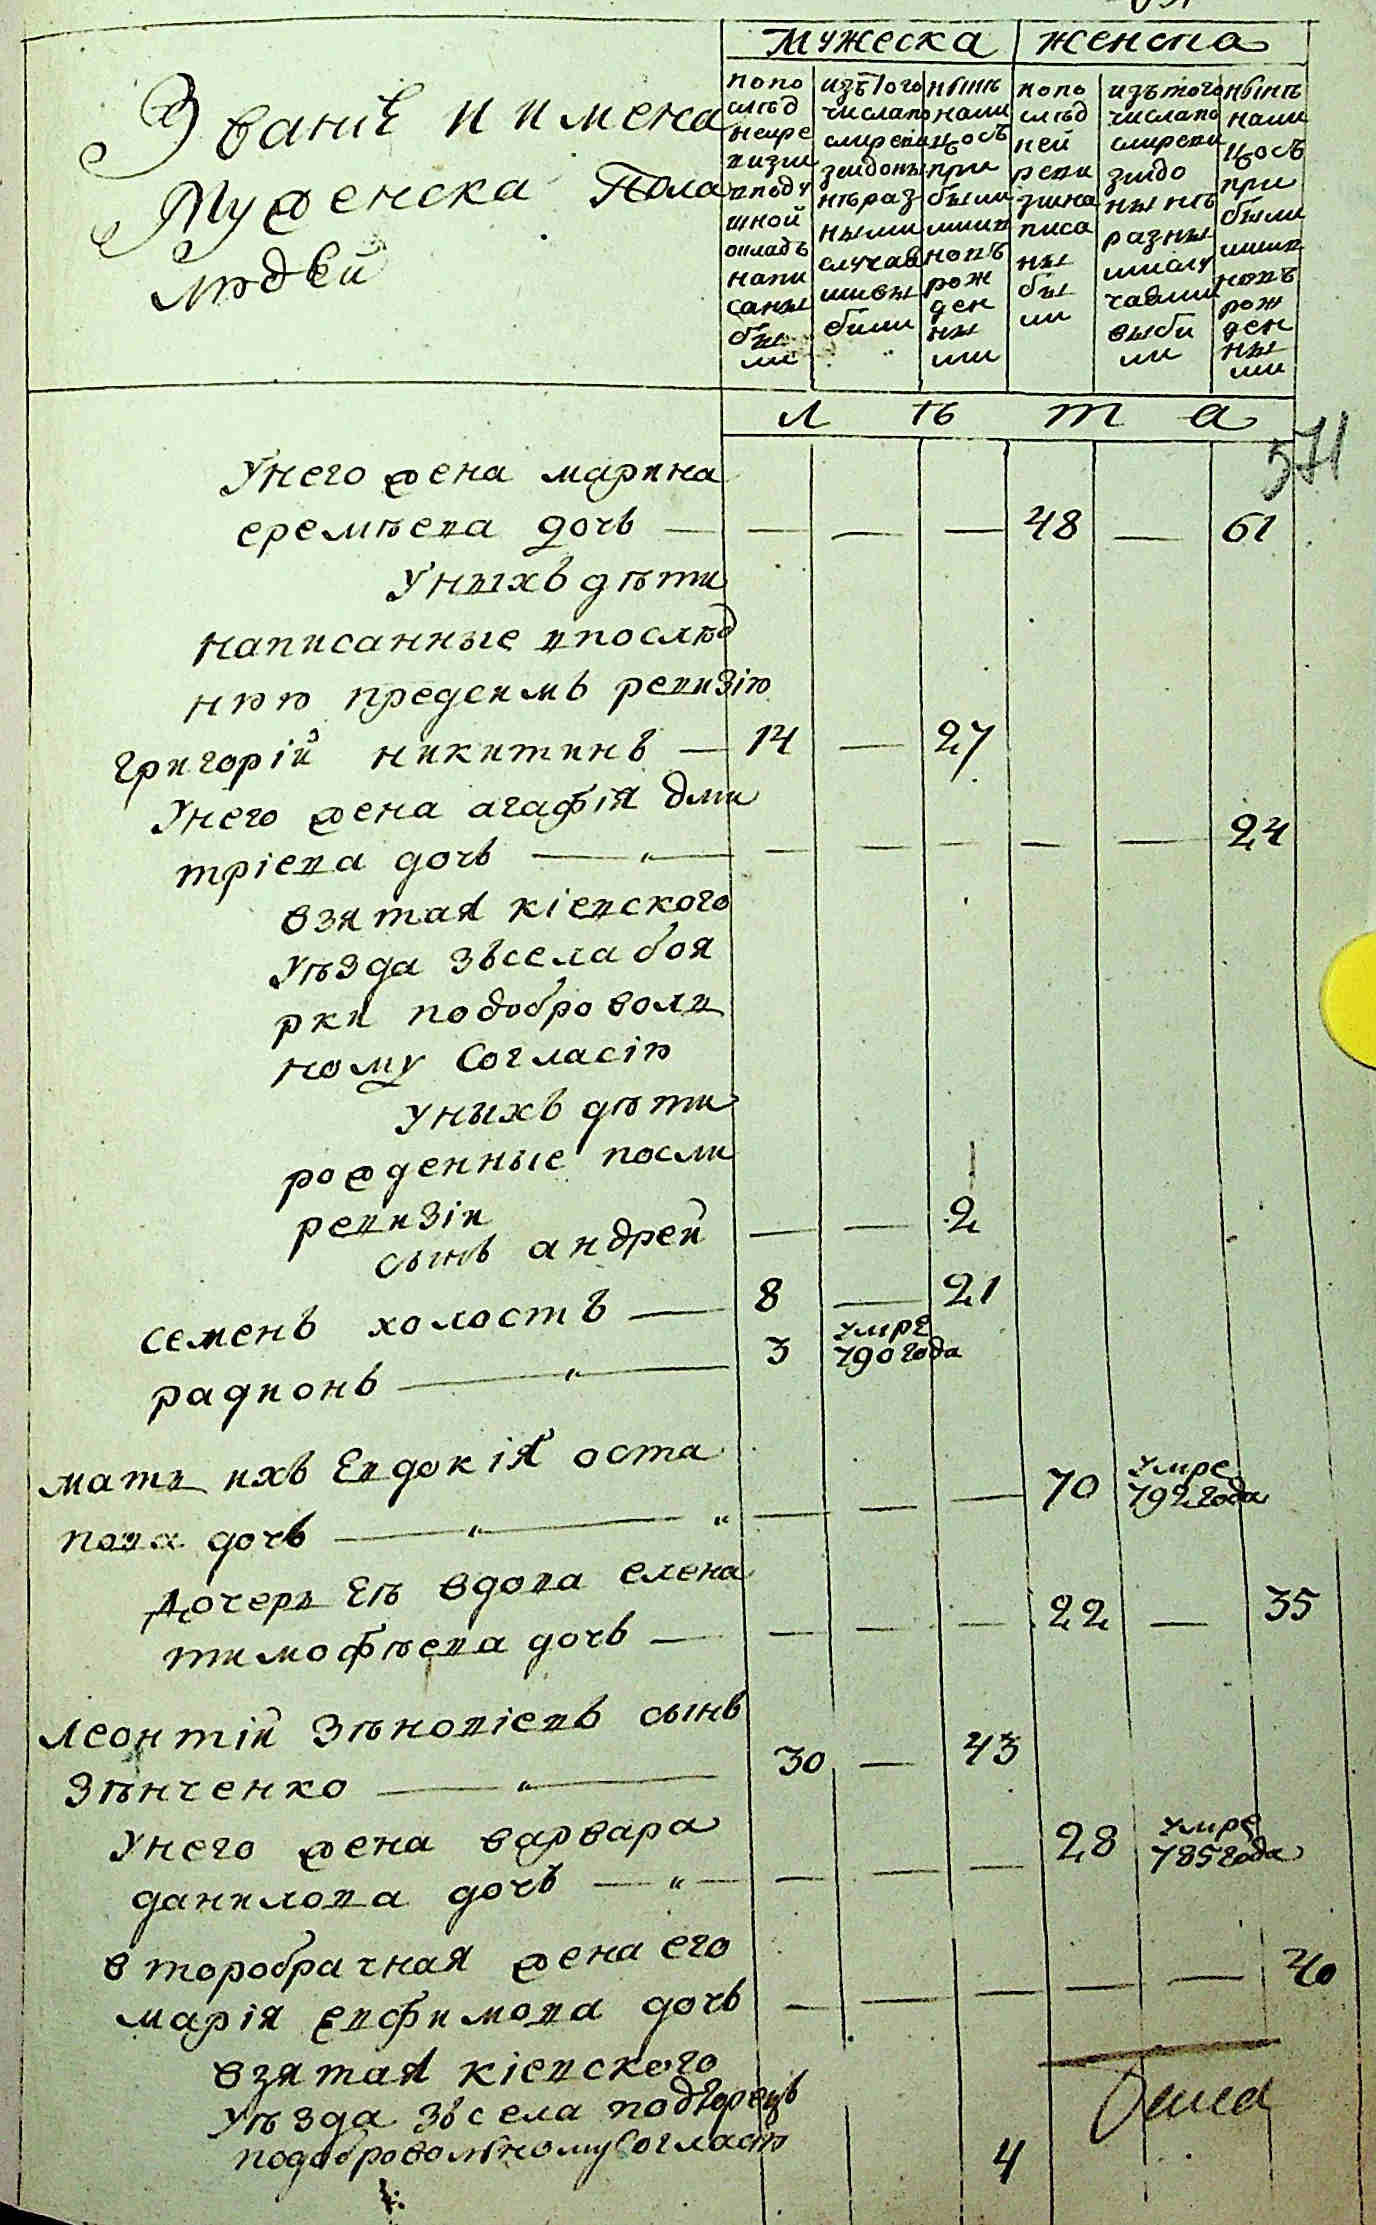 Мужеска женска
Званіе и имена
Мужеска Пола
людей
по по
слѣд
ней ре
визіи
в поду
шной
окладъ
напи
саны
бы
ли
изъ того
числа по
сле реви
зіи до ны
нѣ раз
ными
случая
ми вы
были
нынѣ
нали
цо съ
при
былы
ми и
новъ
рож
ден
ны
ми
по по
слѣд
ней
реви
зіи на
писа
ны
бы
ли
изъ того
числа по
сле реви
зіи до
ны нѣ
разны
ми слу
чаями
выбы
ли
нынѣ
нали
цо съ
при
былы
ми и
новъ
рож
ден
ны
ми
л ѣ т а
571
У него жена марина
еремѣева дочь — — — — 48 — 61
У ныхъ дѣти
написанные в послѣд
нюю предсимъ ревизію
григорій никитинъ — 14 — 27
У него жена агафія дми
тріева дочь — " — — — — — — 24
взятая кіевского
Уѣзда зъ села боя
рки по доброволь
ному Согласію
У ныхъ дѣти
рожденные посли
ревизіи
сынъ андрей — — 2
семенъ холостъ — 8 — 21
радионъ — " — 3 умре
790 года
мать ихъ Евдокія оста
пова дочь — " — " — — — 70 умре
792 года
Дочерь Еѣ вдова елена
тимофѣева дочь — — — — 22 — 35
Леонтій Зѣновіевъ сынъ
Зѣнченко — " — 30 — 43
У него жена варвара
данилова дочь — " — — — — 28 умре
785 года
второбрачная жена его
марія евфимова дочь — — — — — 40
взятая кіевского
Уѣзда зъ села подгорецъ
по добровольному Согласію
4